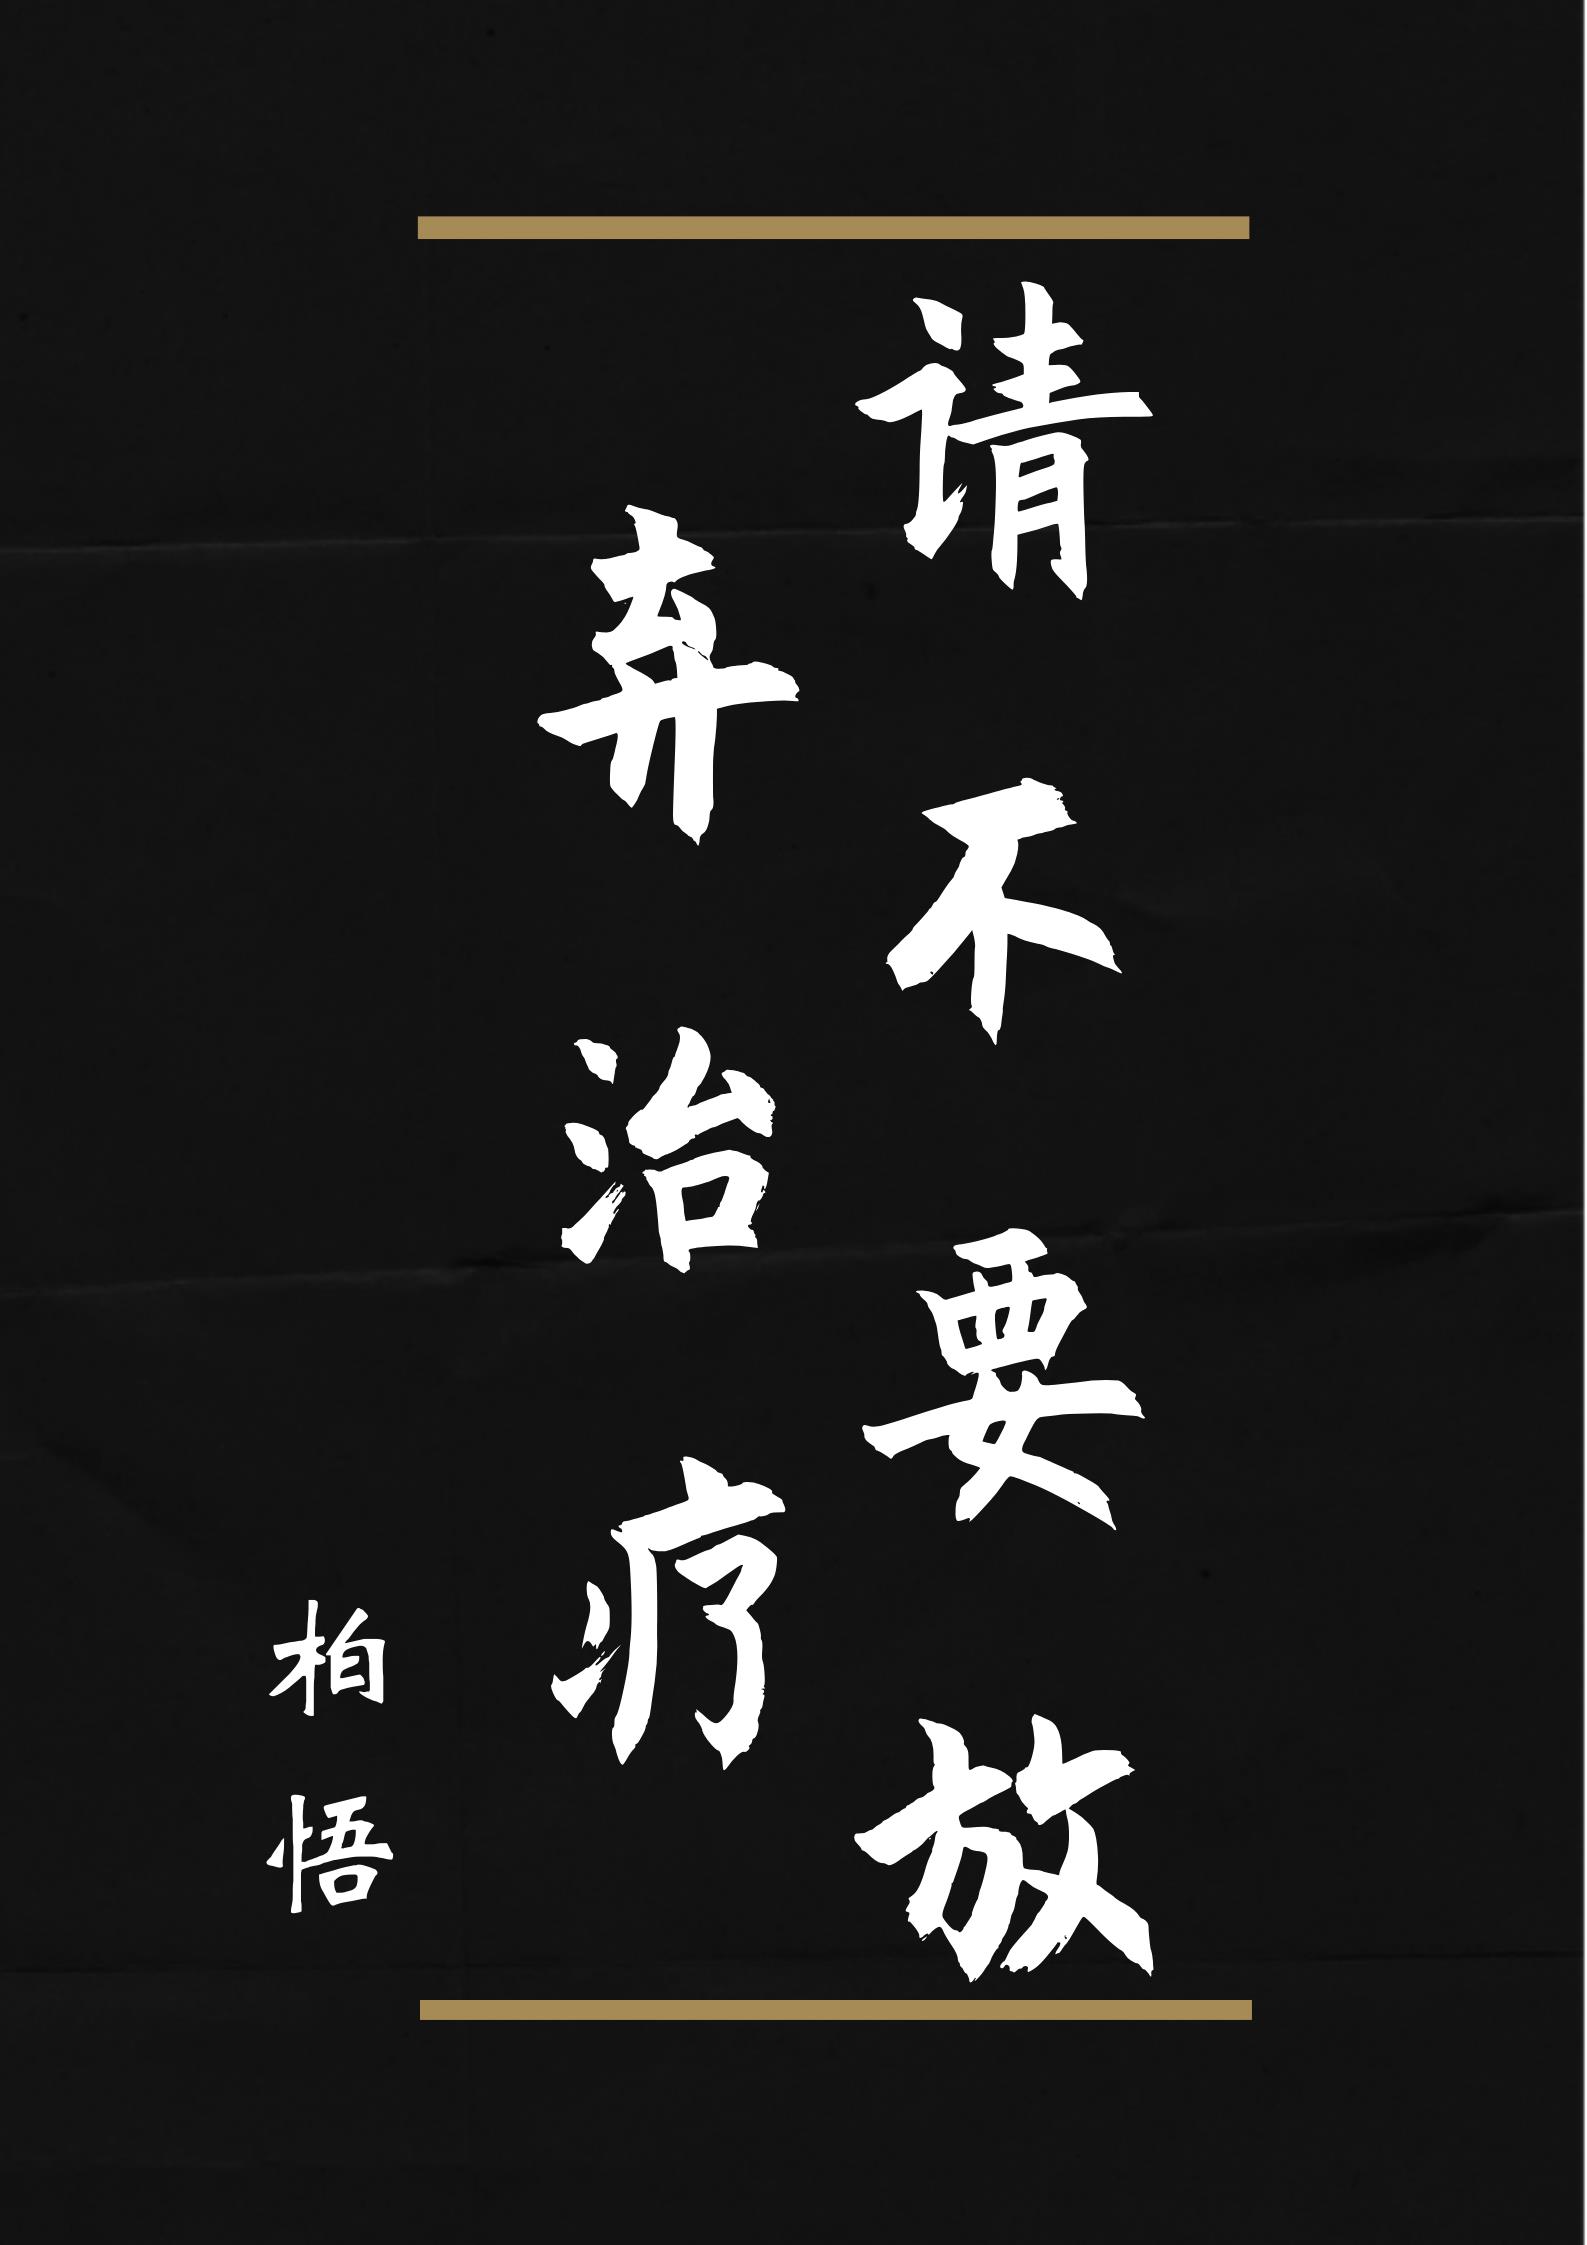 请不要放
弃治疗
柏悟